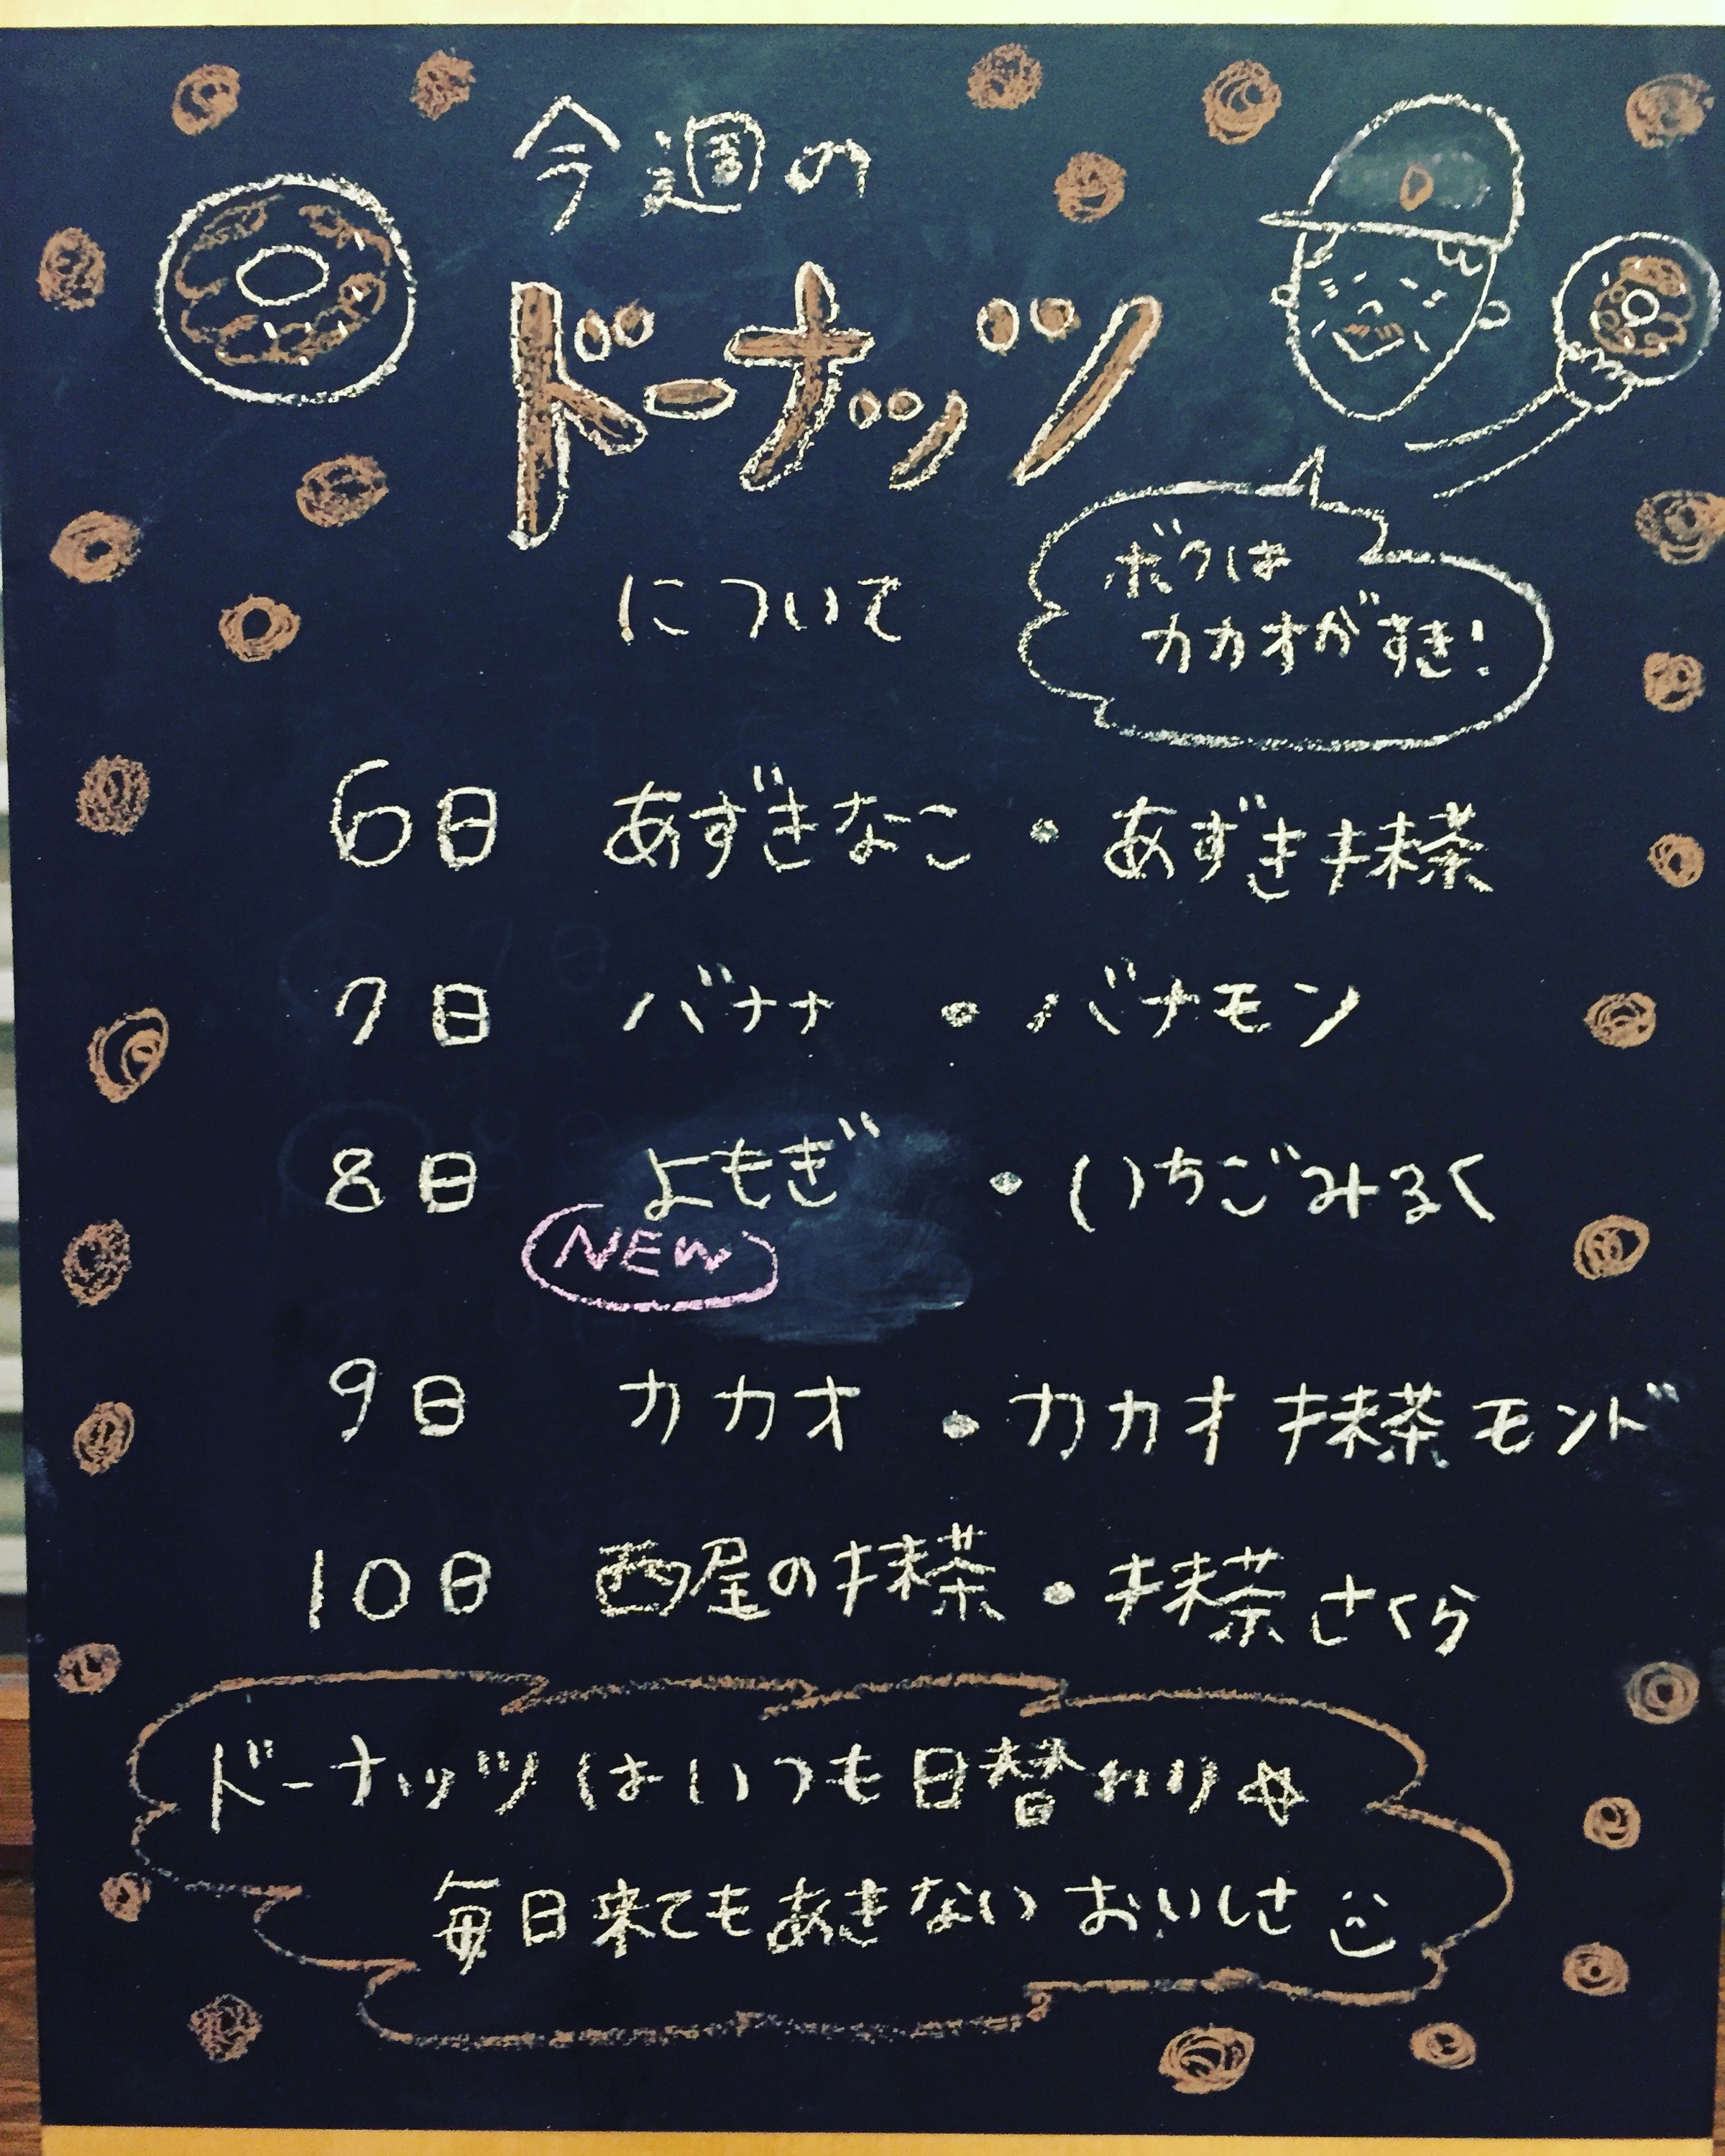 今週の
ドーナッツ
について
ボクは
カカオがすき!
6日 あずきなこ・あずき抹茶
7日 バナナ・バナモン
8日 よもぎ・いちごみるく
NEW
9日 カカオ・カカオ抹茶モンド
10日 西屋の抹茶・抹茶さくら
ドーナッツはいつも日替わり☆
毎日来てもあきないおいしさ